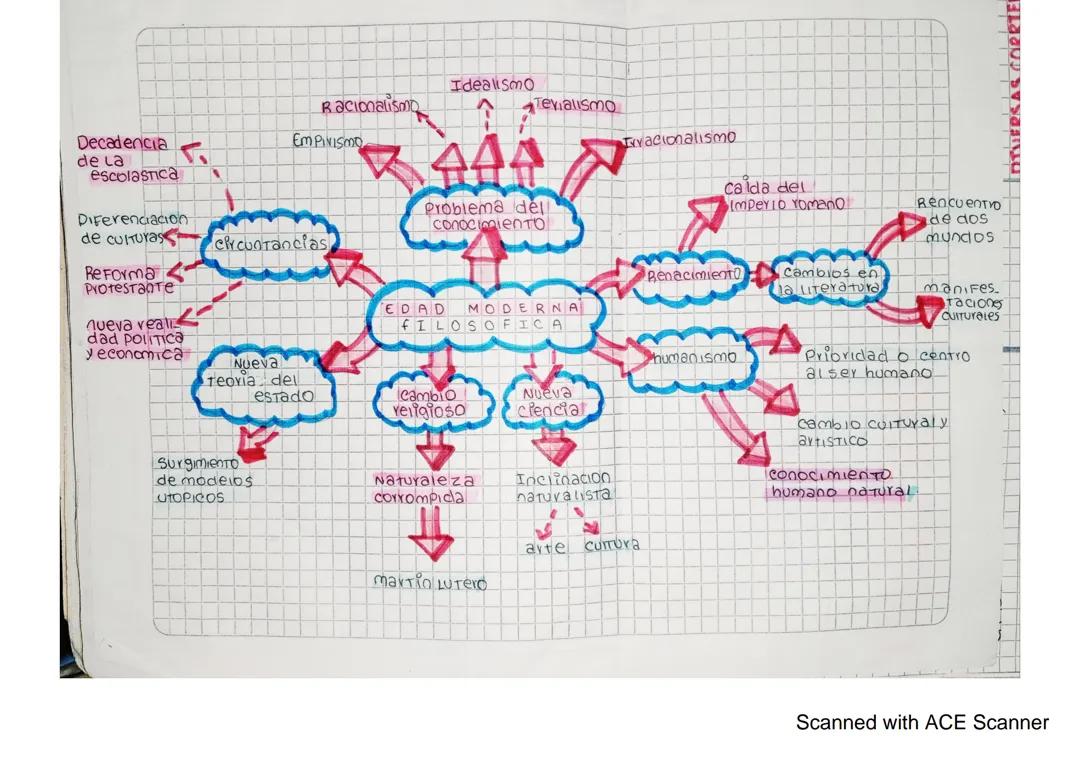 Idealismo
Racionalismo
Terialismo
Empirismo
Irracionalismo
Problema del
conocimiento
Decadencia
de La
escolastica
Diferenciacion
de culturas
Reforma
Protestante
nueva reali-
dad politica
y economica
circuntancias
EDAD MODERNA
fILOSOFICA
Caida del
Imperio romano
Renacimiento
cambios en
la literatura
Rencuentro
de dos
mundos
manifes-
taciones
culturales
humanismo
Prioridad o centro
al ser humano
cambio cultural y
artistico
conocimiento
humano natural
Nueva
Teoria del
estado
Surgimiento
de modelos
utopicos
cambio
religioso
Naturaleza
corrompida
martin Lutero
Nueva
ciencia
Inclinacion
naturalista
arte cultura
DIVERSAS CORRIE
Scanned with ACE Scanner